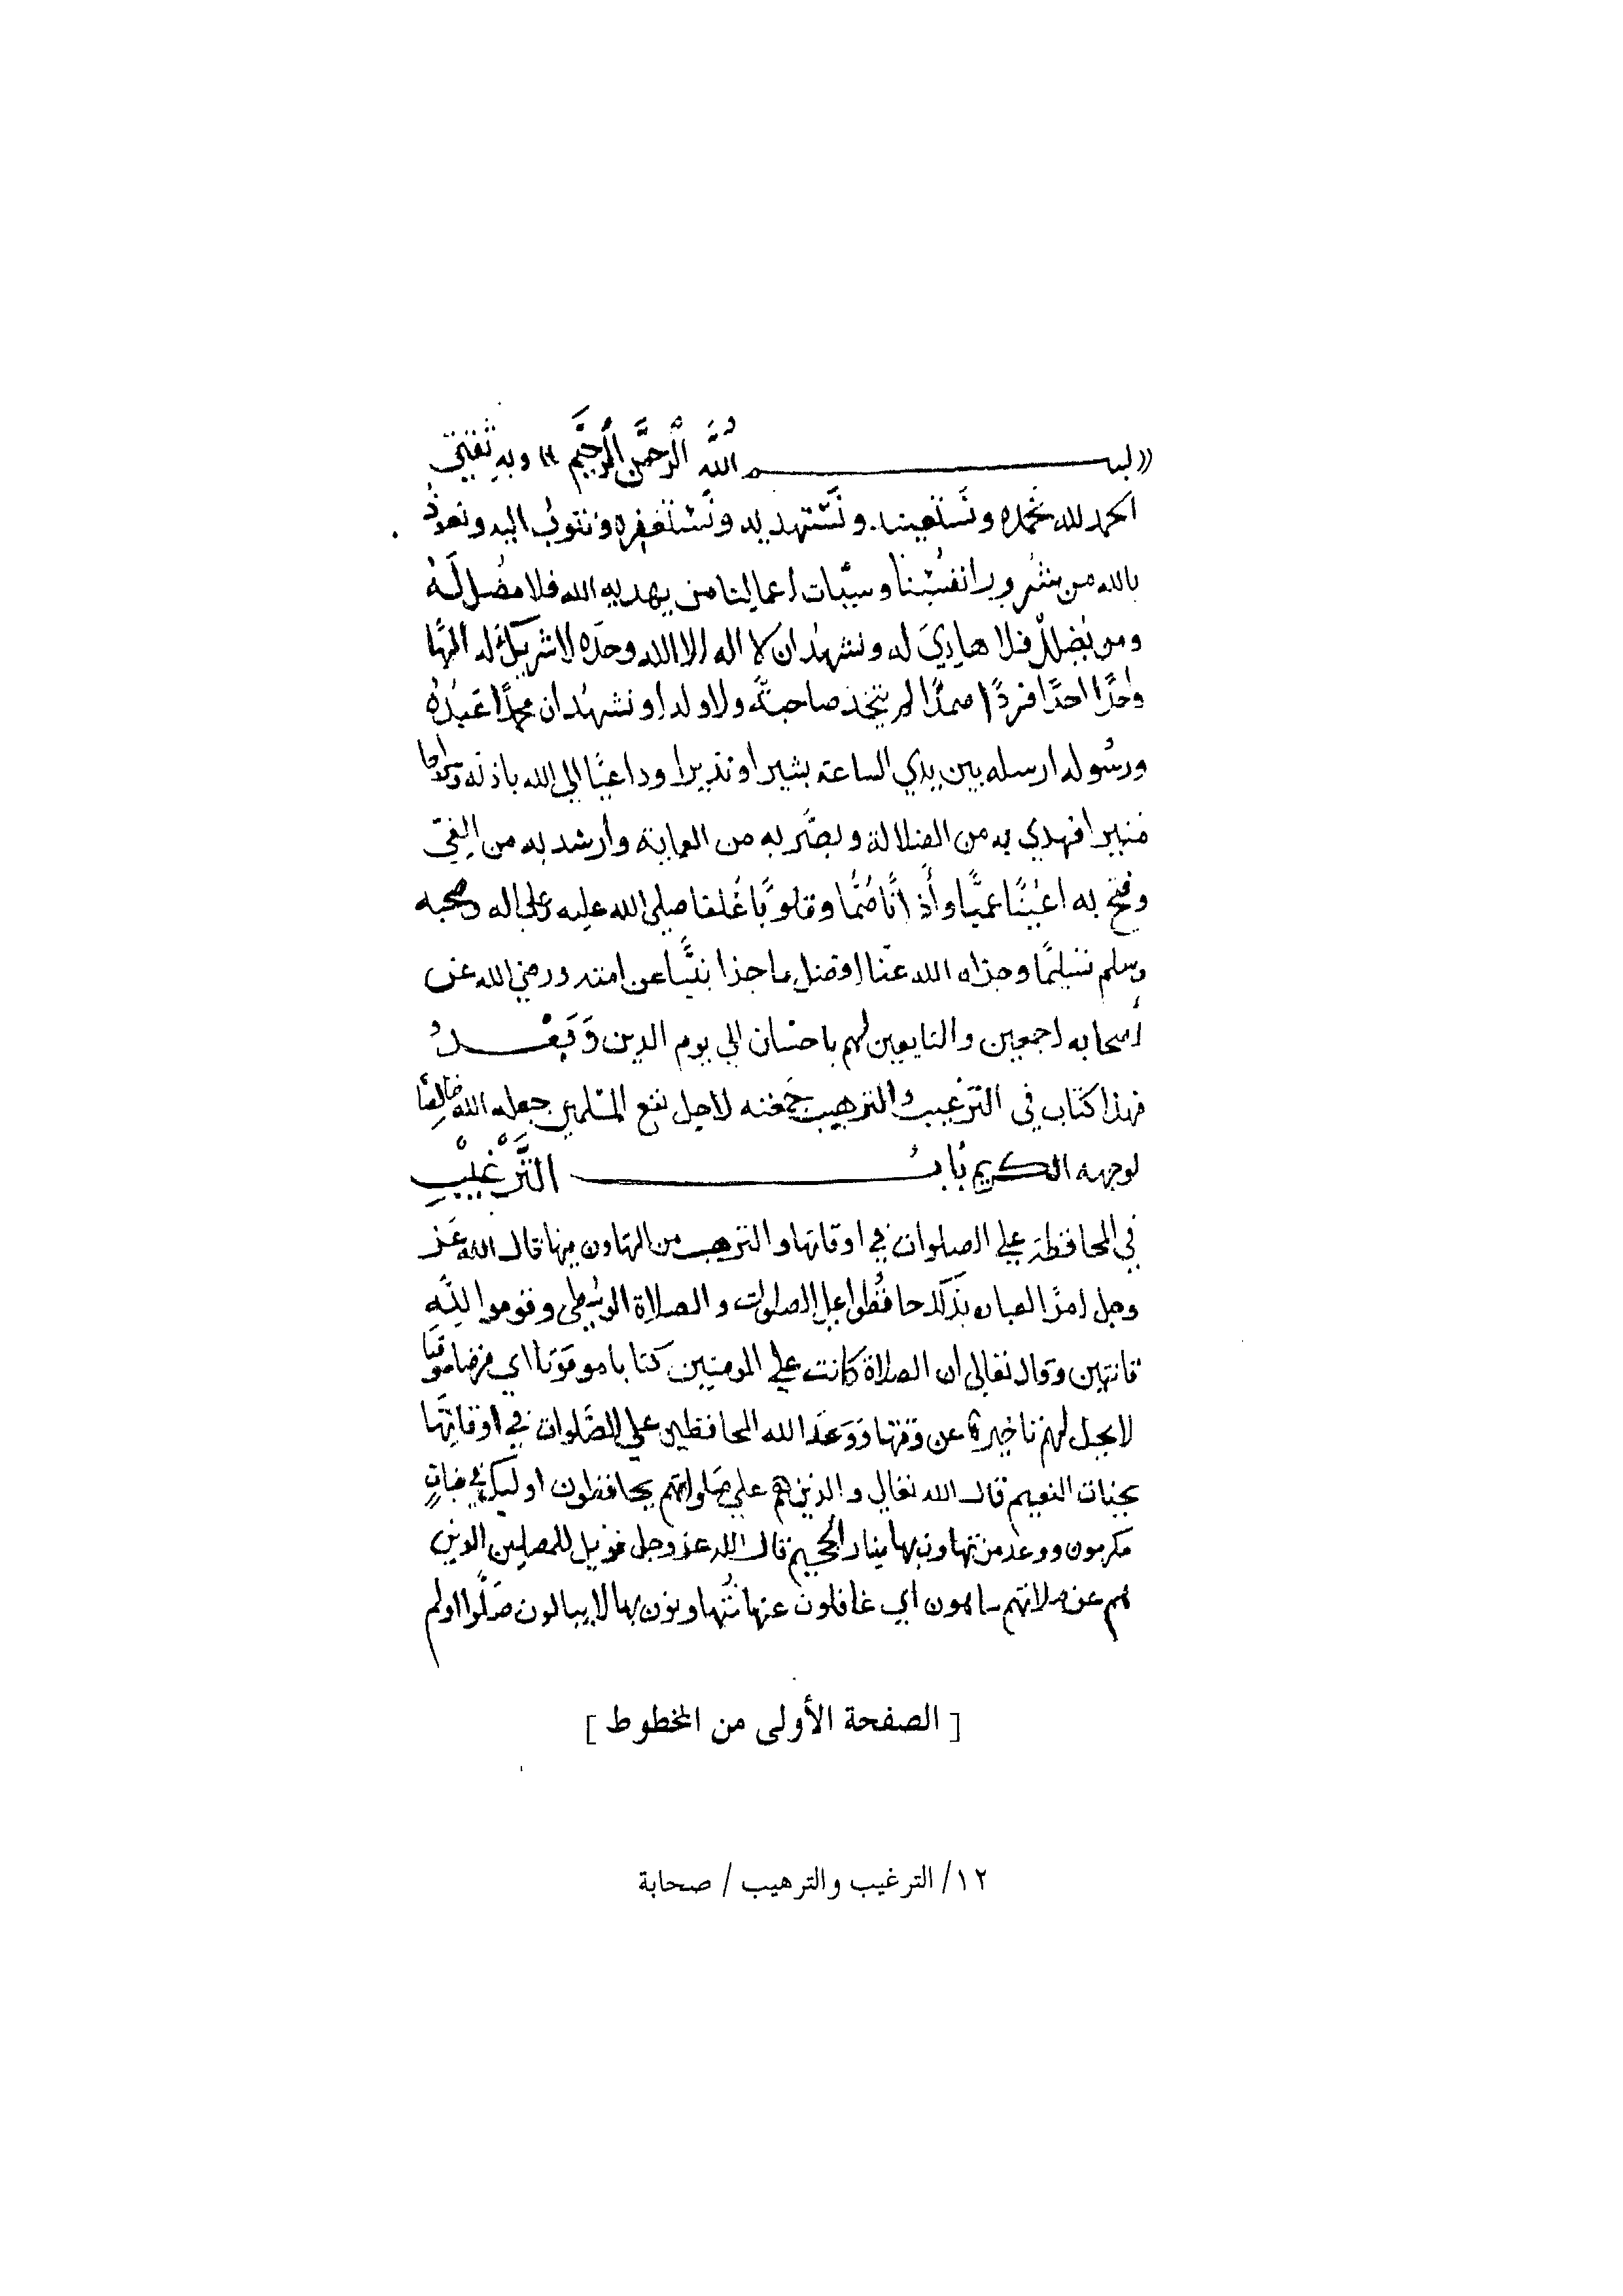 «بسم اللهُ الرحمن الرحيم» وبه ثقتي
الحمد لله نحمده ونستعينه ونستهديه ونستغفره ونتوب اليه ونعوذ
بالله من شرور انفسنا وسيئات اعمالنا من يهديه الله فلا مضل له
ومن يضلل فلا هادي له ونشهد ان لا اله الا الله وحده لا شريك له الهًا
واحدًا احدًا فردًا صمدًا لم يتخذ صاحبة ولا ولدا ونشهد ان محمدًا عبده
ورسوله ارسله بين يدي الساعة بشيرا ونذيرا وداعيًا الي الله باذنه وسراجا
منيرا فهدي به من الضلالة وبصر به من العماية وأرشد به من الغي
وفتح به اعينًا عميًا وأذانًا صُمًّا وقلوبًا غُلفا صلى الله عليه وعلى اله وصحبه
وسلم تسليمًا وجزاه الله عنا افضل ما جزا نبيًّا عن امته ورضي الله عن
أصحابه اجمعين والتابعين لهم باحسان الي يوم الدين وَبَعْدُ
فهذا كتاب في الترغيب والترهيب جمعته لاجل نفع المسلمين جعله الله خالصًا
لوجهه الكريم بَابُ التَّرْغيْبِ
في المحافظة علي الصلوات في اوقاتها والترهيب من التهاون بها قال الله عز
وجل امرًا لعباده بذلك حافظوا علي الصلوات والصلاة الوسطي وقوموا للَّه
قانتين وقال تعالي ان الصلاة كانت علي المومنين كتابا موقوتا اي فرضا موقتا
لا يحل لهم تاخيرها عن وقتها ووعَد الله المحافظين علي الصَّلوات في اوقاتها
بجنات النعيم قال الله تعالي والذين هم علي صلواتهم يحافظون اوليك في جناتٍ
مكرمون ووعد من تهاون بها بنار الجحيم قال الله عز وجل فويل للمصلين الذين
هم عن صلاتهم ساهون أي غافلون عنها متهاونون بها لا يبالون صَلَّوا او لم
[ الصفحة الأولى من المخطوط ]
١٢/ الترغيب والترهيب / صحابة